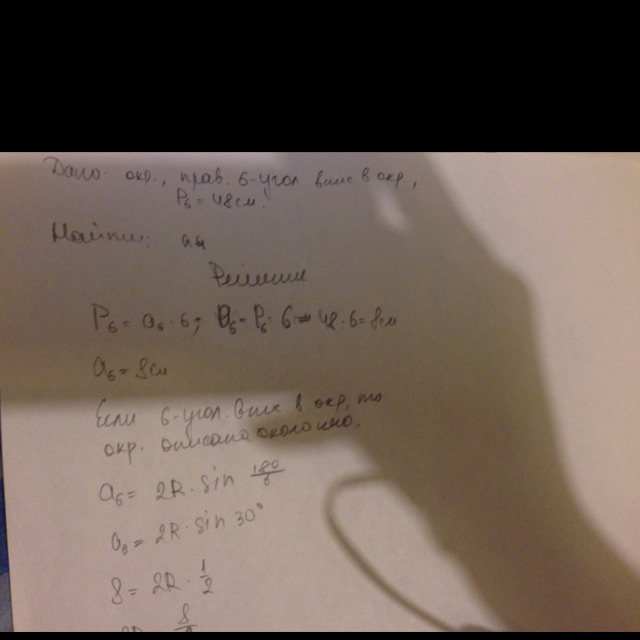 Дано: окр., прав. 6-угол впис в окр,
P₆ = 48см.
Найти: a₄
Решение.
P₆ = a₆ · 6; a₆ = P₆ : 6 = 48 : 6 = 8см
a₆ = 8см
Если 6-угол. впис в окр, то
окр. описана около него.
a₆ = 2R · sin 180/6
a₆ = 2R · sin 30°
8 = 2R · 1/2